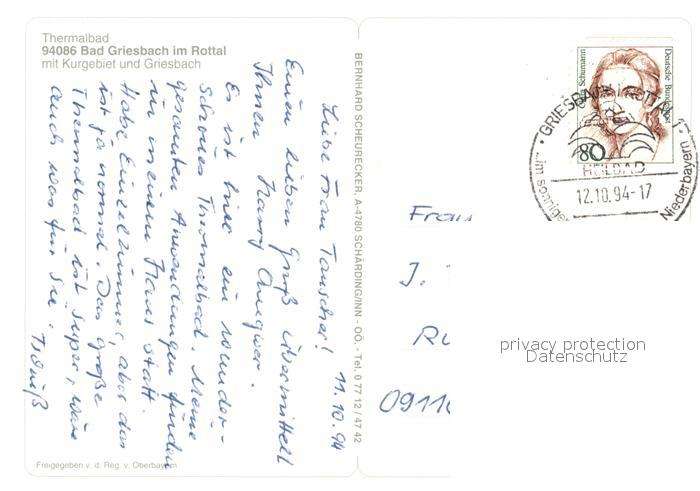 Thermalbad
94086 Bad Griesbach im Rottal
mit Kurgebiet und Griesbach
11.10.94
Liebe Frau Tauscher!
Einen lieben Gruß übermittelt
Ihnen Harry
Es ist hier ein wunder-
schönes Thermalbad. Meine
gesamten Anwendungen finden
in meinem Haus statt.
Habe Einzelzimmer, aber das
ist ja normal. Das große
Thermalbad ist super, wäre
auch was für Sie.
Tschüß
Freigegeben v. d. Reg. v. Oberbayern
BERNHARD SCHEURECKER, A-4780 SCHÄRDING/INN - OÖ. - Tel. 0 77 12 / 47 42
Deutsche Bundespost
Schumann
80
GRIESBACH I ROTTAL 1
HEILBAD
12.10.94-17
...im sonnigen
Niederbayern
Frau
J.
Ru
0911
privacy protection
Datenschutz